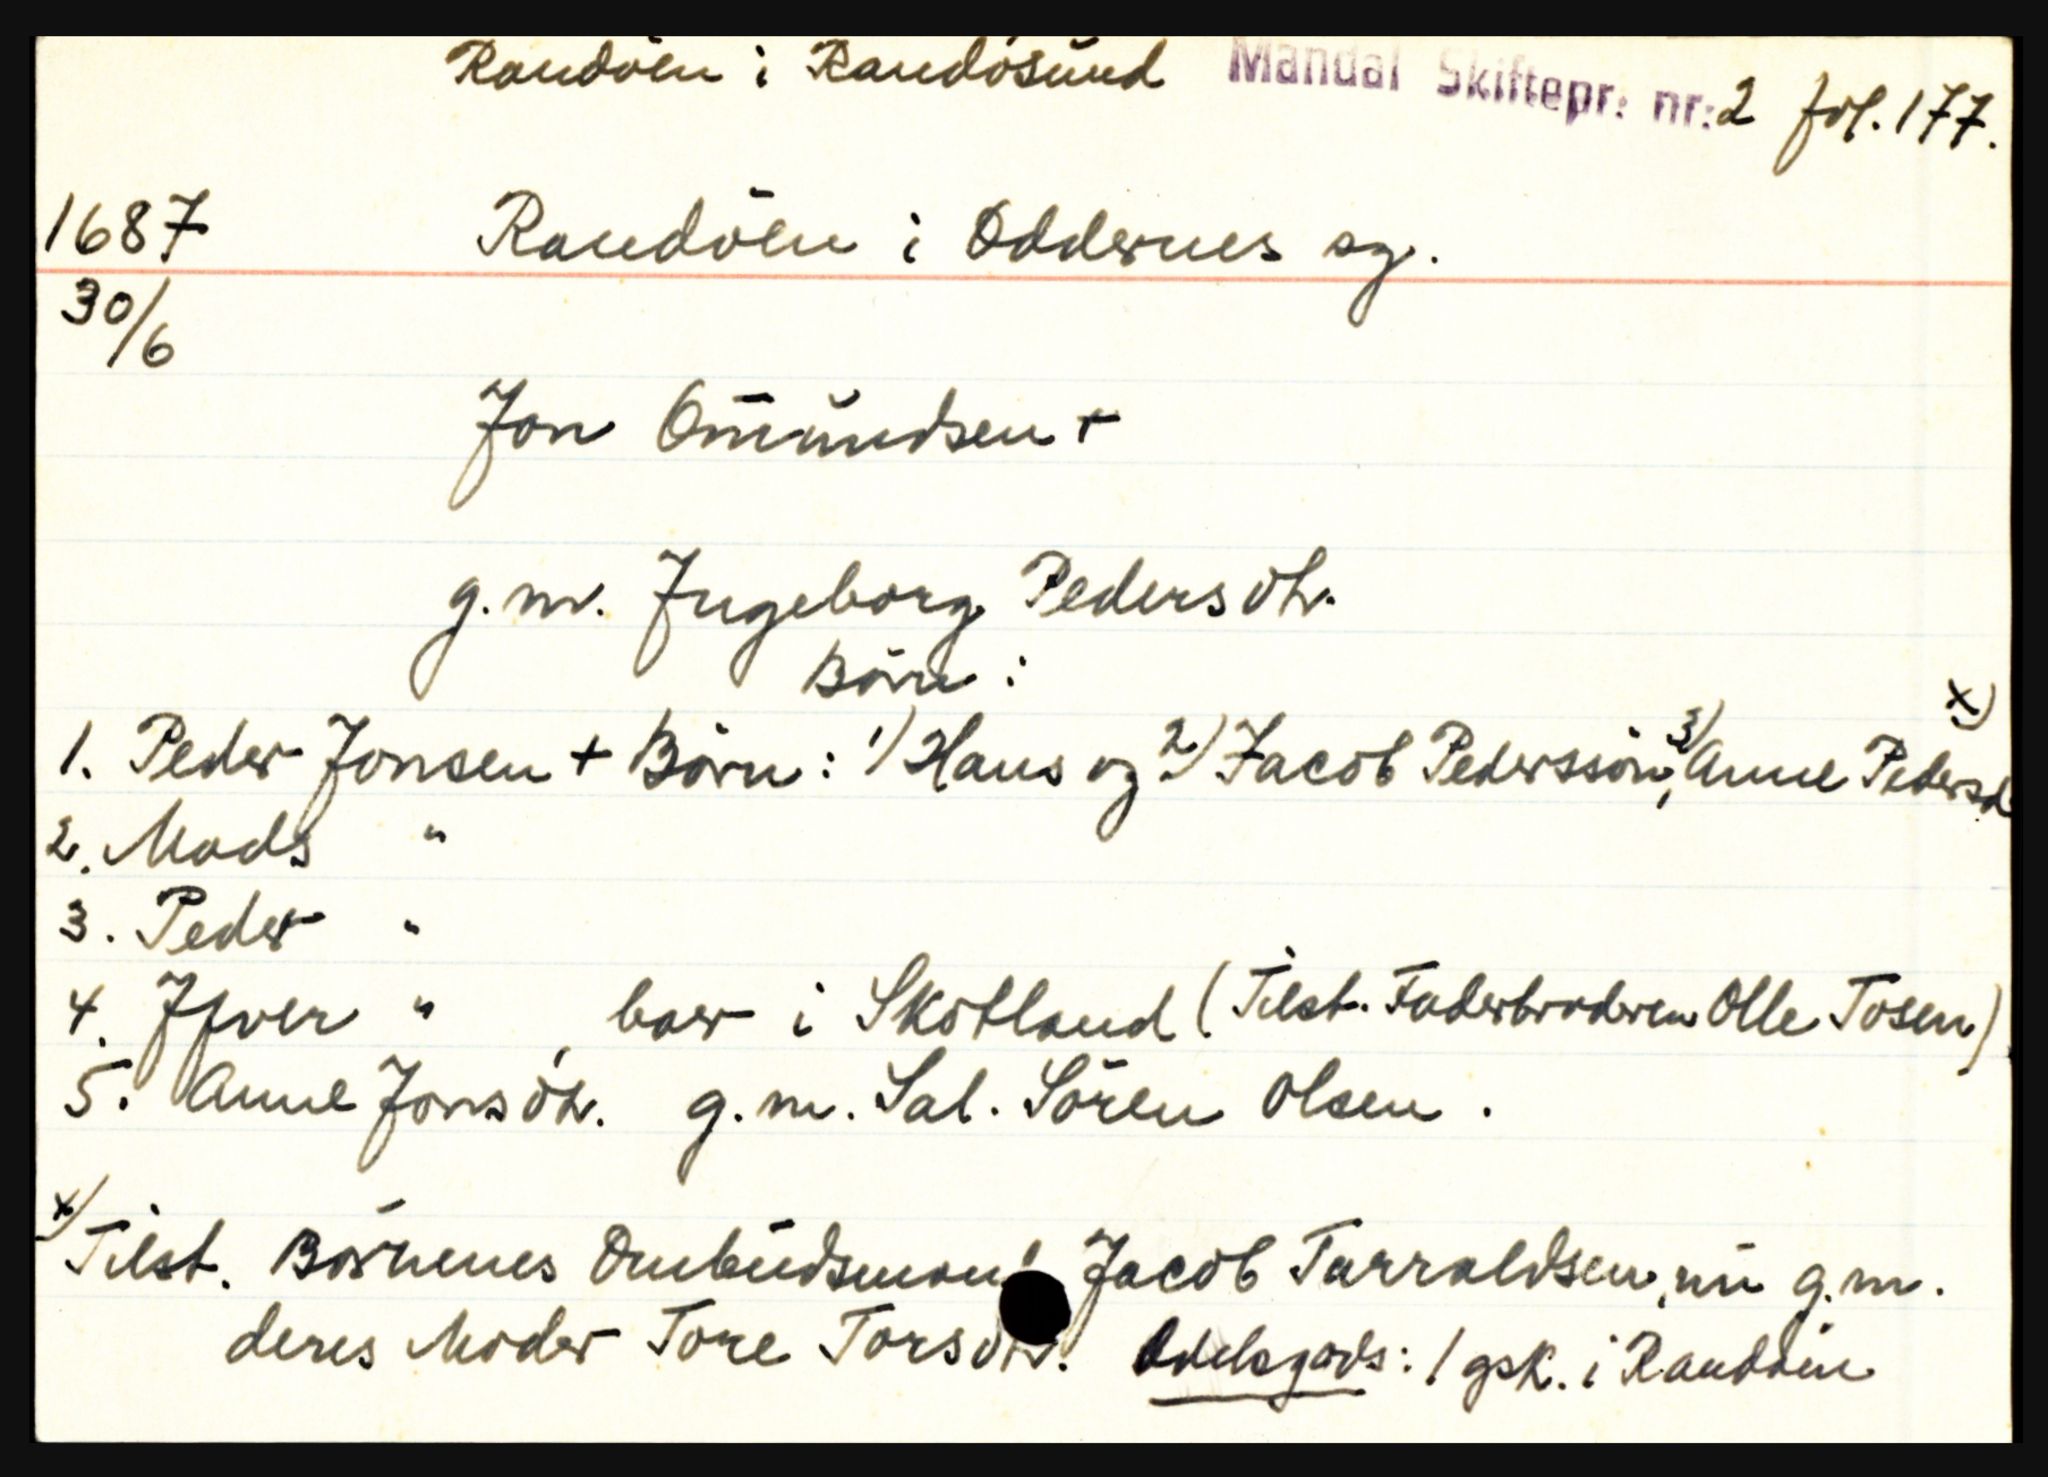 Randöen i Randösund Mandal Skiftepr. nr: 2 fol. 177.
1687 Randöen i Oddernes sg.
30/6
Jon Omundsen +
g. m. Ingeborg Pedersdtr.
Börn:
1. Peder Jonsen + Börn: 1) Hans og 2) Jacob Pederssön, 3) Anne Pedersd x)
2. Mads "
3. Peder "
4. Ifver ", boer i Skotland (Tilst. Faderbroderen Olle Tosen)
5. Anne Jonsdtr. g. m. Sal. Sören Olsen.
x) Tilst. Börnenes Ombudsmand Jacob Tarraldsen, nu g. m.
deres Moder Tore Torsdtr. Odelsgods: 1 gsk. i Randöen